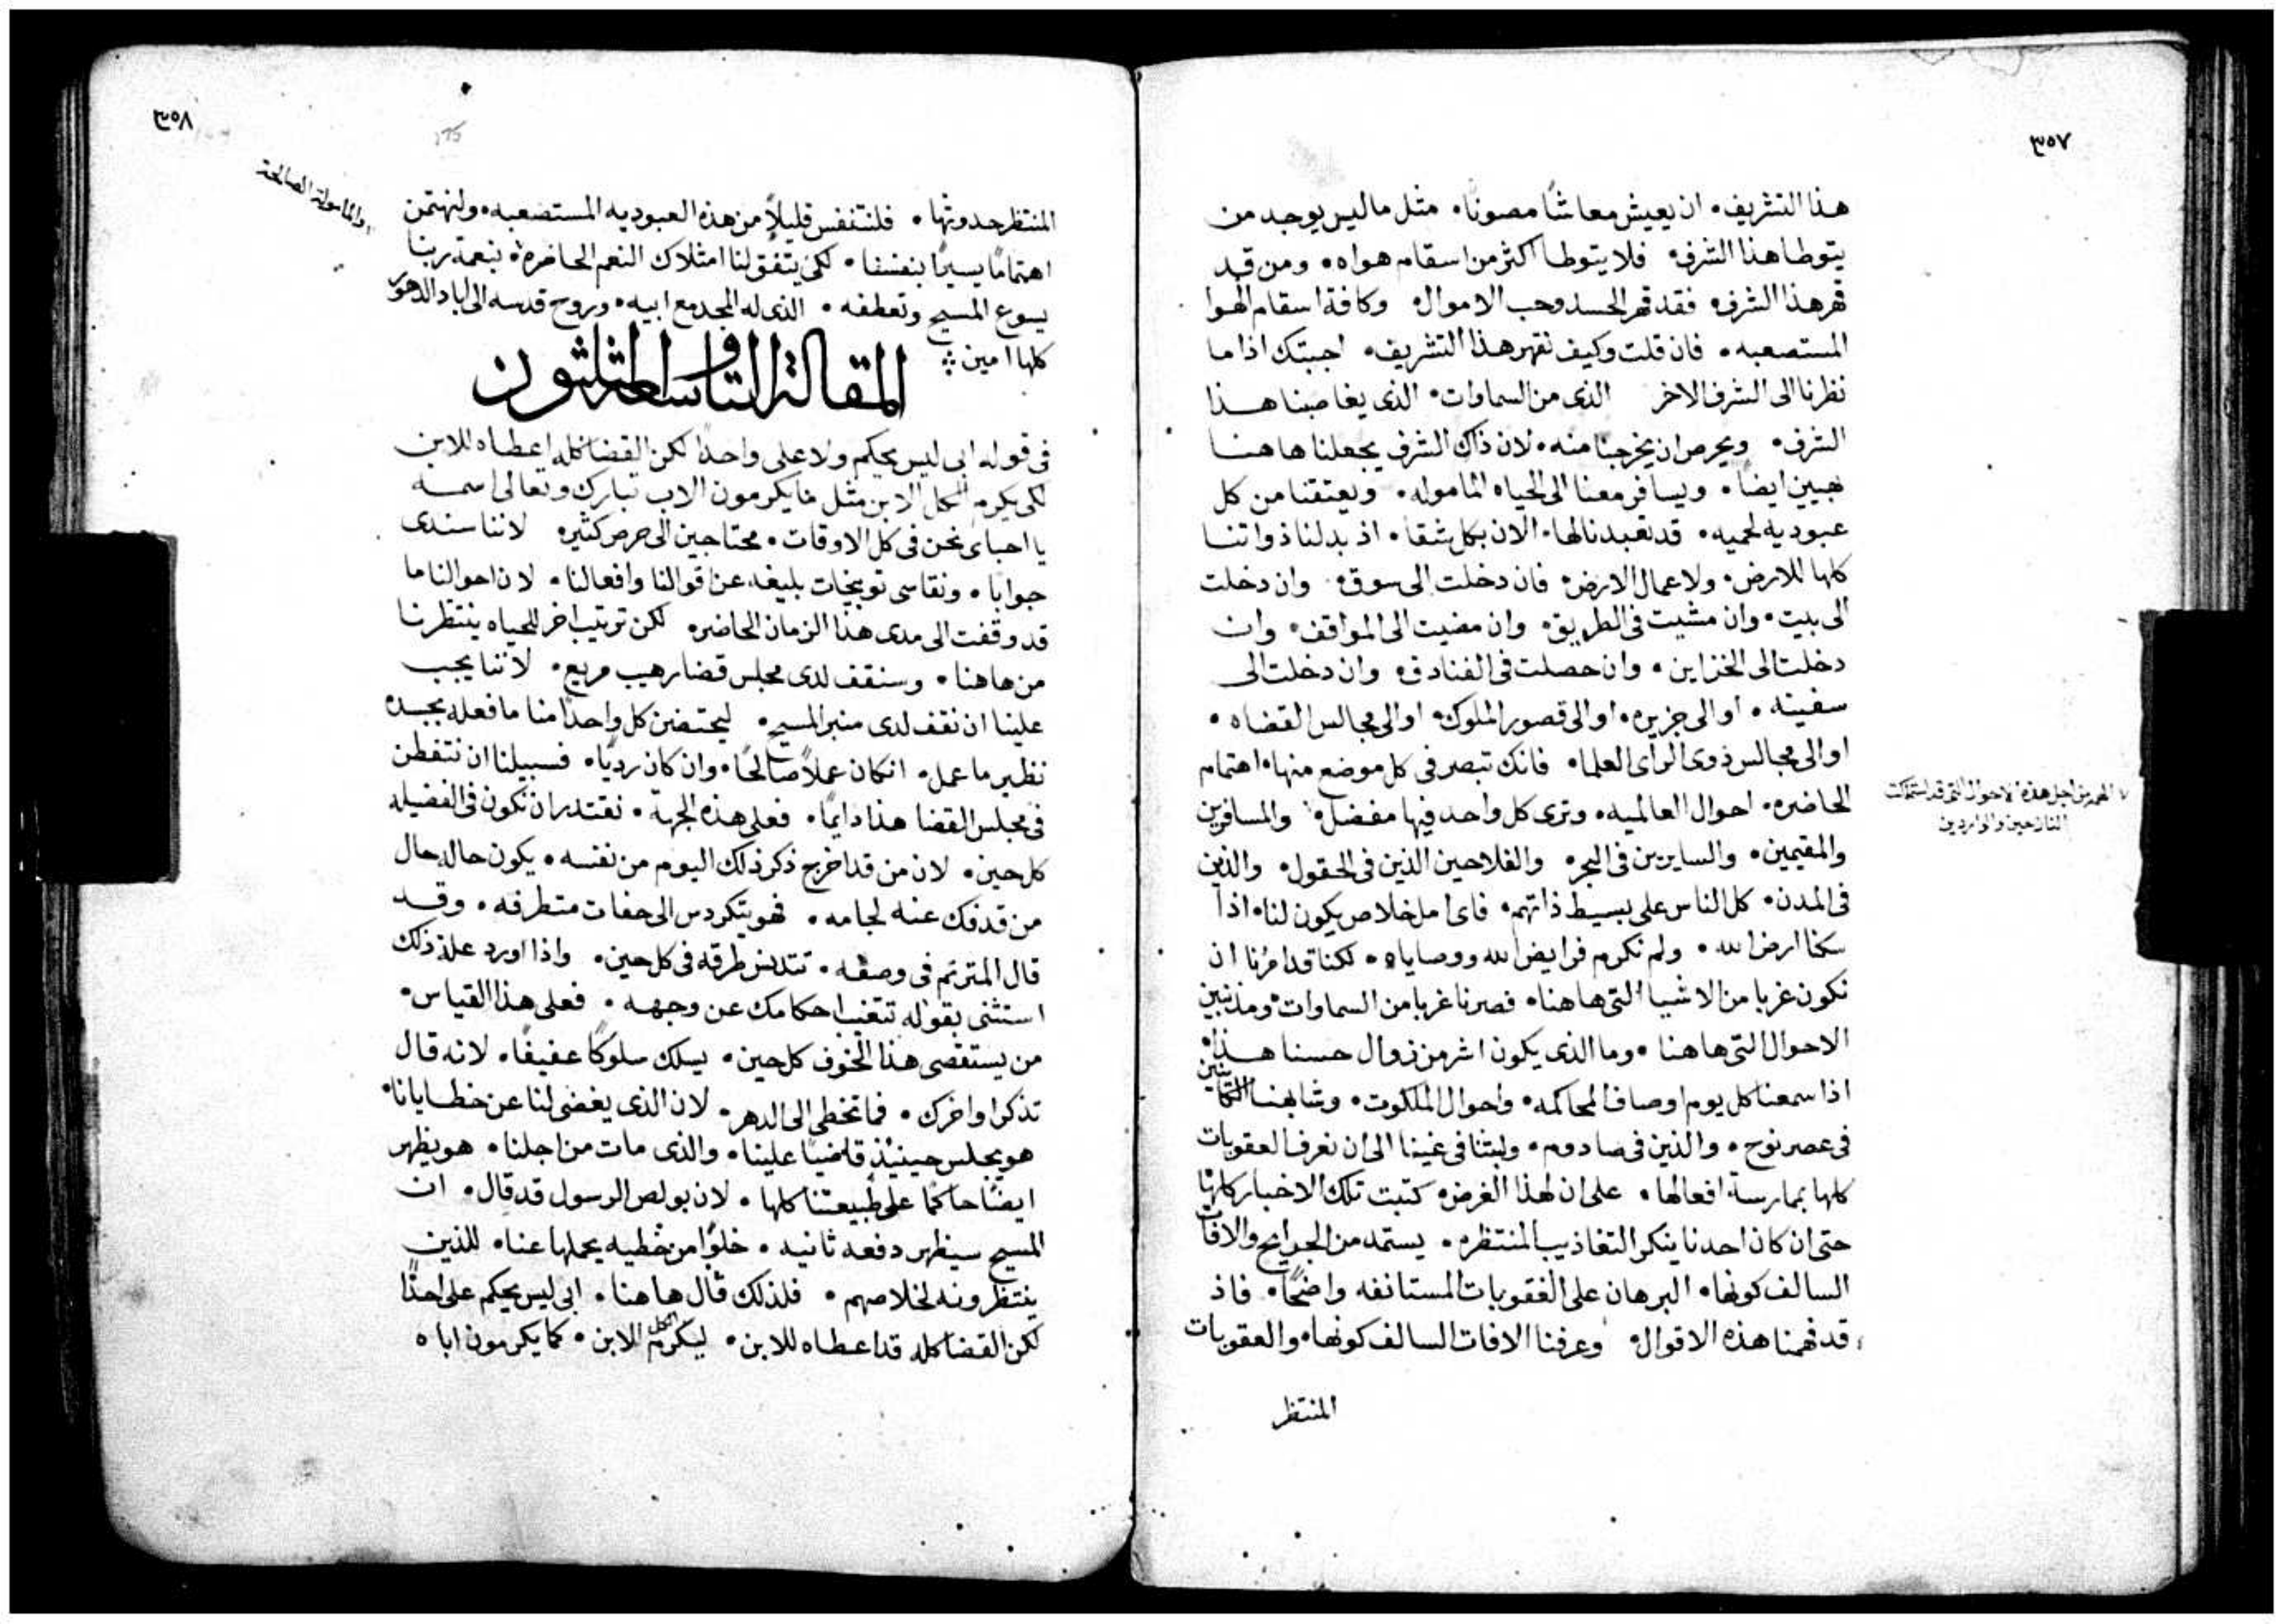 ٣٥٧
هذا التشريف، ان يعيش معاشًا مصونًا، مثل ما ليس يوجد من
يتوطا هذا الشرف، فلا يتوطا اكثر من اسقام هواه، ومن قد
قهر هذا الشرف، فقد قهر الحسد وحب الاموال، وكافة اسقام الهوا
المستصعبه، فان قلت وكيف نقهر هذا التشريف، اجبتك اذا ما
نظرنا الى الشرف الاخر الذى من السماوات، الذى يغاصبنا هذا
الشرف، ويحرص ان يخرجنا منه، لان ذاك الشرف يجعلنا هاهنا
بهيين ايضًا، ويسافر معنا الى الحياه الماموله، ويعتقنا من كل
عبوديه لحميه، قد تعبدنا لها، الان بكل شقا، اذ بدلنا ذواتنا
كلها للارض، ولاعمال الارض، فان دخلت الى سوق، وان دخلت
الى بيت، وان مشيت فى الطريق، وان مضيت الى المواقف، وان
دخلت الى الخزاين، وان حصلت فى الفنادق، وان دخلت الى
سفينه، او الى جزيره، او الى قصور الملوك، او الى مجالس القضاه،
او الى مجالس ذوى الراى العلما، فانك تبصر فى كل موضع منها، اهتمام
الحاضره، احوال العالميه، وترى كل واحد فيها مفضل، والمسافرين
من اجل هذه الاحوال التى قد استملكت
النازحين والواردين
والمقيمين، والسايرين فى البحر، والفلاحين الذين فى الحقول، والذين
فى المدن، كل الناس على بسيط ذاتهم، فاى امل خلاص يكون لنا، اذا
سكنا ارض الله، ولم نكرم فرايض الله ووصاياه، لكنا قد امرنا ان
نكون غربا من الاشيا التى هاهنا، فصرنا غربا من السماوات، ومذنبين
الاحوال التى هاهنا، وما الذى يكون اشر من زوال حسنا هذا،
اذا سمعنا كل يوم اوصاف المحاكمه، واحوال الملكوت، وشابهنا الكاينين
فى عصر نوح، والذين فى صادوم، ولبثنا فى غينا الى ان نعرف العقوبات
كلها بممارسة افعالها، على ان لهذا الغرض، كتبت تلك الاخبار كلها
حتى ان كان احدنا ينكر التعاذيب المنتظره، يستمد من الجرايح والافات
السالف كونها، البرهان على العقوبات المستانفه واضحًا، فاذ
قد فهمنا هذه الاقوال، وعرفنا الافات السالف كونها، والعقوبات
المنتظر
٣٥٨
والماموله الصالحة
المنتظر حدوثها، فلنتنفس قليلًا من هذه العبوديه المستصعبه، ولنهتمن
اهتمامًا يسيرًا بنفسنا، لكى يتفق لنا امتلاك النعم الحاضرة، بنعمة ربنا
يسوع المسيح وتعطفه، الذى له المجد مع ابيه، وروح قدسه الى اباد الدهور
كلها امين
المقالة التاسعة والثلثون
فى قوله ابى ليس يحكم ولا على واحدًا لكن القضا كله اعطاه للابن
لكى يكرم الكل الابن مثل ما يكرمون الاب تبارك وتعالى اسمه
يا احباى نحن فى كل الاوقات، محتاجين الى حرص كثير، لاننا سندى
جوابًا، ونقاسى توبيخات بليغه عن اقوالنا وافعالنا، لان احوالنا ما
قد وقفت الى مدى هذا الزمان الحاضر، لكن ترتيب اخر للحياه ينتظرنا
من هاهنا، وسنقف لدى مجلس قضا رهيب مريع، لاننا يجب
علينا ان نقف لدى منبر المسيح، ليحتضن كل واحدًا منا ما فعله بجسده
نظير ما عمل، انكان عملًا صالحًا، وان كان رديًا، فسبيلنا ان نتفطن
فى مجلس القضا هذا دايمًا، فعلى هذه الجهة، نقتدر ان نكون فى الفضيله
كل حين، لان من قد اخرج ذكر ذلك اليوم من نفسه، يكون حاله حال
من قد فك عنه لجامه، فهو يتكردس الى حفات متطرفه، وقد
قال المترنم فى وصفه، تتدنس طرقه فى كل حين، واذا اورد علة ذلك
استثنى بقوله تتغيب احكامك عن وجهه، فعلى هذا القياس،
من يستقصى هذا الخوف كل حين، يسلك سلوكًا عفيفًا، لانه قال
تذكر اواخرك، فما تخطى الى الدهر، لان الذى يغضى لنا عن خطايانا،
هو يجلس حينيذ قاضيًا علينا، والذى مات من اجلنا، هو يظهر
ايضًا حاكمًا على طبيعتنا كلها، لان بولص الرسول قد قال، ان
المسيح سيظهر دفعه ثانيه، خلوًا من خطيه يحملها عنا، للذين
ينتظرونه لخلاصهم، فلذلك قال هاهنا، ابى ليس يحكم على احدًا
لكن القضا كله قد اعطاه للابن، ليكرم الكل الابن، كما يكرمون اباه